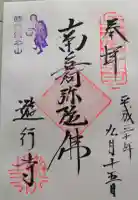 奉拝
平成三十年
九月十五日
南無阿弥陀佛
時宗総本山
遊行寺